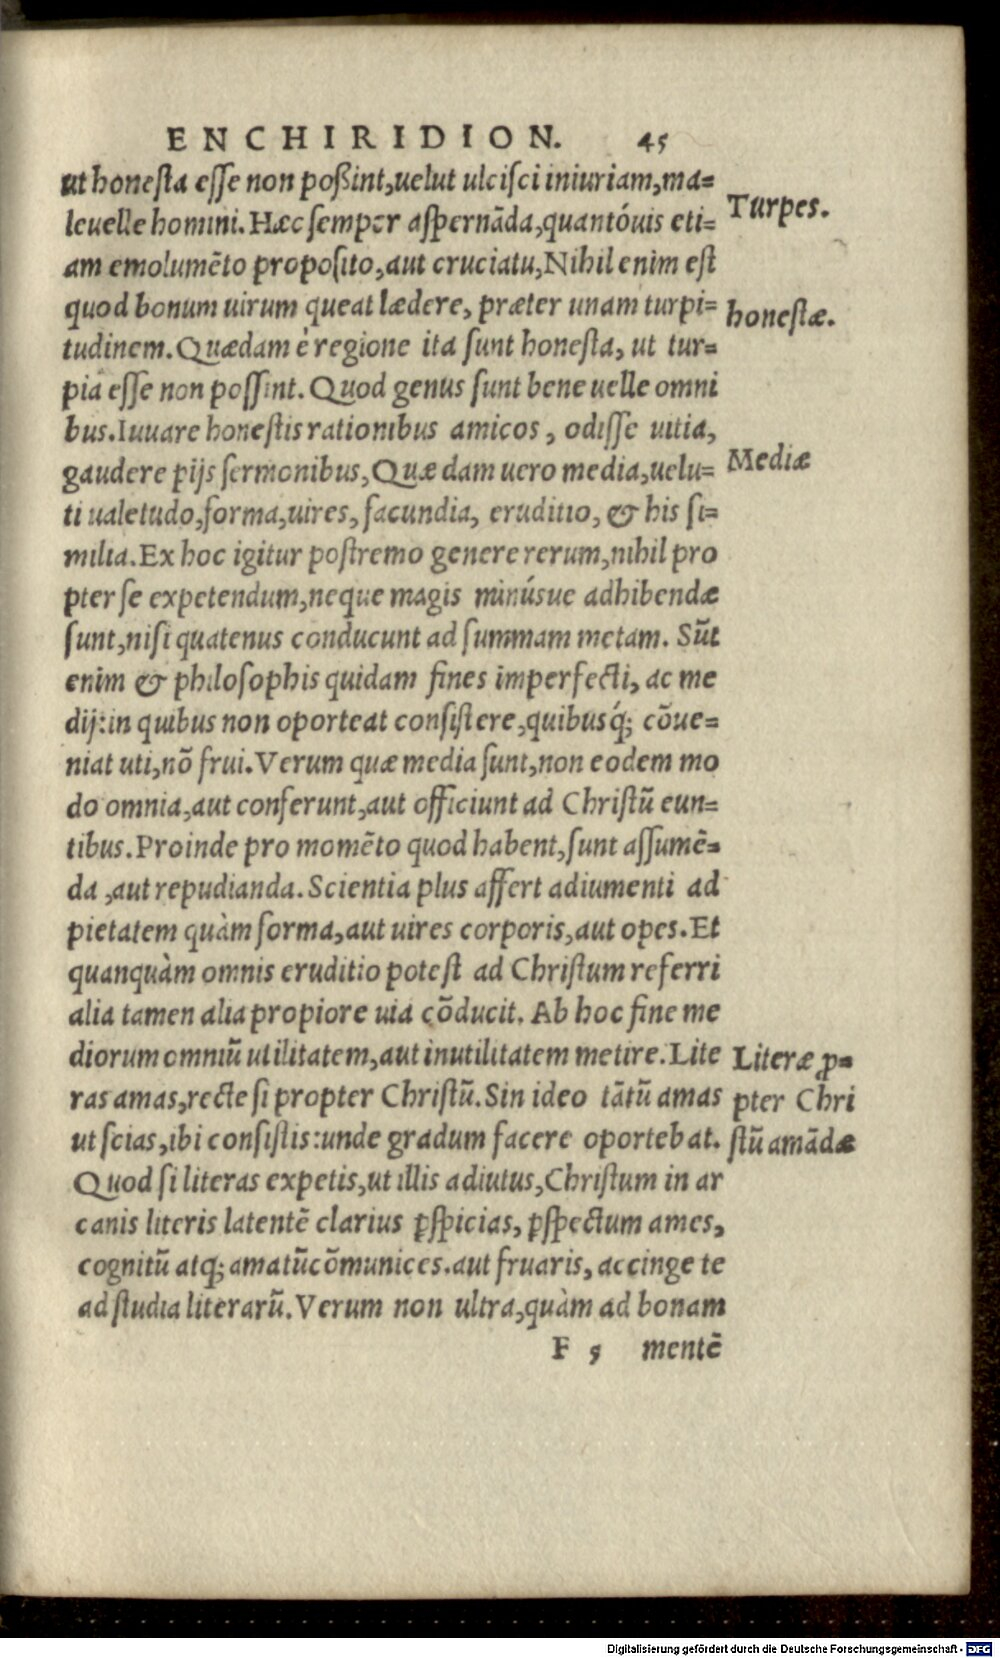 ENCHIRIDION. 45
ut honesta esse non poßint, uelut ulcisci iniuriam, ma=
le uelle homini. Hæc semper aspernāda, quantóuis eti= Turpes.
am emolumēto proposito, aut cruciatu, Nihil enim est
quod bonum uirum queat lædere, præter unam turpi= honestæ.
tudinem. Quædam è regione ita sunt honesta, ut tur=
pia esse non possint. Quod genus sunt bene uelle omni
bus. Iuuare honestis rationibus amicos, odisse uitia,
gaudere pijs sermonibus, Quædam uero media, uelu= Mediæ
ti ualetudo, forma, uires, facundia, eruditio, & his si=
milia. Ex hoc igitur postremo genere rerum, nihil pro
pter se expetendum, neque magis minúsue adhibendæ
sunt, nisi quatenus conducunt ad summam metam. Sūt
enim & philosophis quidam fines imperfecti, ac me
dij: in quibus non oporteat consistere, quibusq́; cōue=
niat uti, nō frui. Verum quæ media sunt, non eodem mo
do omnia, aut conferunt, aut officiunt ad Christū eun=
tibus. Proinde pro momēto quod habent, sunt assumē=
da, aut repudianda. Scientia plus affert adiumenti ad
pietatem quàm forma, aut uires corporis, aut opes. Et
quanquàm omnis eruditio potest ad Christum referri
alia tamen alia propiore uia cōducit. Ab hoc fine me
diorum omniū utilitatem, aut inutilitatem metire. Lite Literæ ꝓ=
ras amas, recte si propter Christū. Sin ideo tātū amas pter Chri
ut scias, ibi consistis: unde gradum facere oportebat. stū amādæ
Quod si literas expetis, ut illis adiutus, Christum in ar
canis literis latentē clarius ꝑspicias, ꝑspectum ames,
cognitū atq; amatū cōmunices. aut fruaris, accinge te
ad studia literarū. Verum non ultra, quàm ad bonam
F 5 mentē
Digitalisierung gefördert durch die Deutsche Forschungsgemeinschaft - DFG